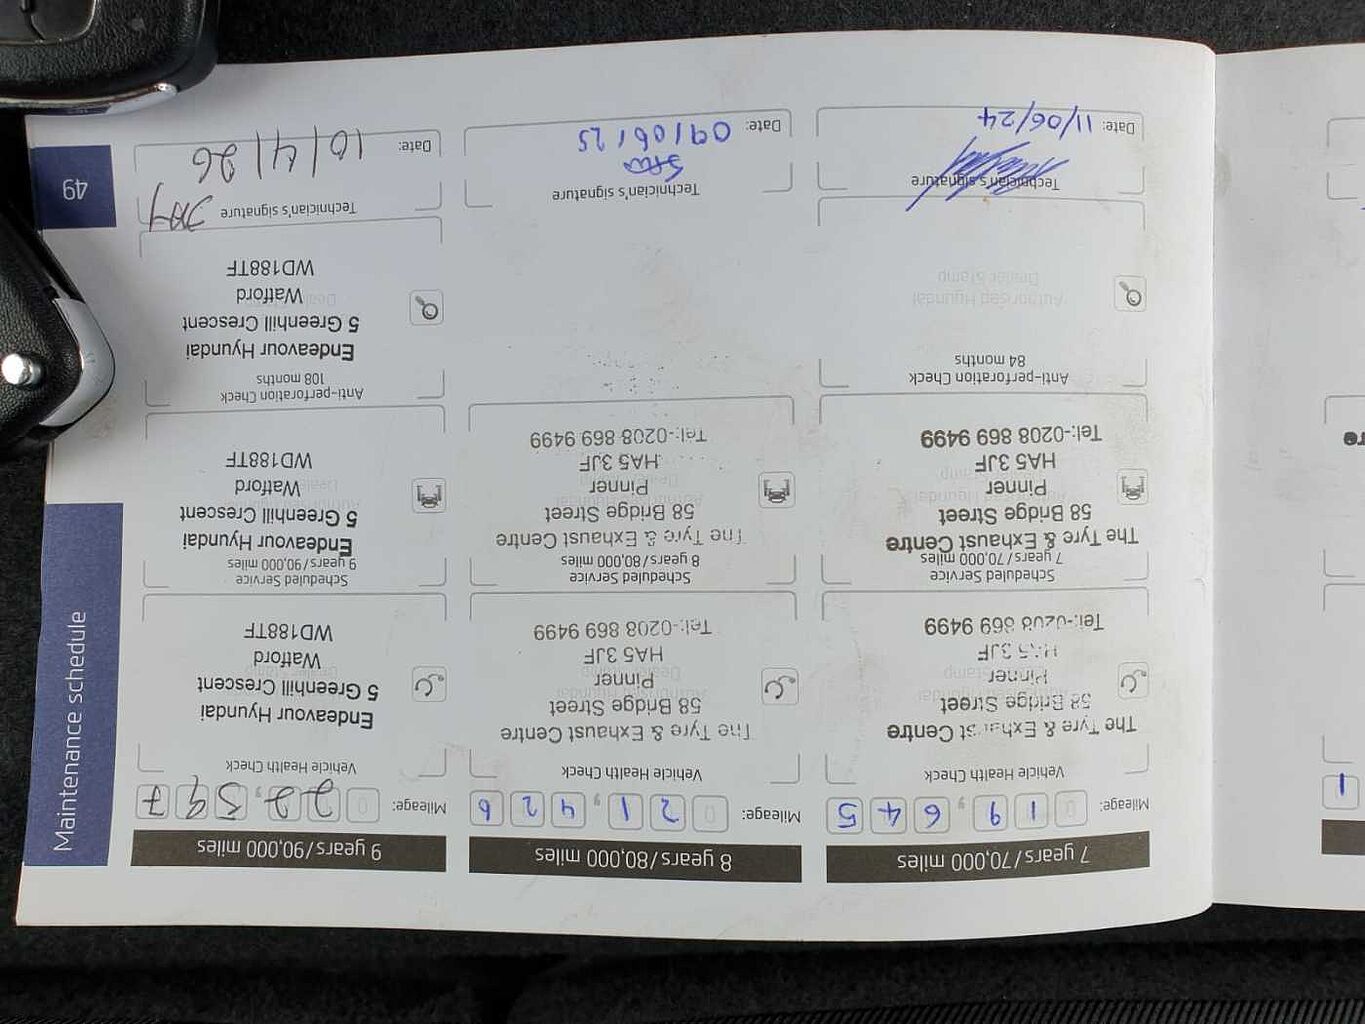 7 years/70,000 miles
Mileage: 0 1 9 , 6 4 5
Vehicle Health Check
The Tyre & Exhaust Centre
58 Bridge Street
Pinner
HA5 3JF
Tel:-0208 869 9499
Scheduled Service
7 years/70,000 miles
The Tyre & Exhaust Centre
58 Bridge Street
Pinner
HA5 3JF
Tel:-0208 869 9499
Anti-perforation Check
84 months
Authorised Hyundai
Dealer Stamp
Technician's signature
Date: 11/06/24
8 years/80,000 miles
Mileage: 0 2 1 , 4 2 6
Vehicle Health Check
The Tyre & Exhaust Centre
58 Bridge Street
Pinner
HA5 3JF
Tel:-0208 869 9499
Scheduled Service
8 years/80,000 miles
The Tyre & Exhaust Centre
58 Bridge Street
Pinner
HA5 3JF
Tel:-0208 869 9499
Technician's signature
Date: 09/06/25
9 years/90,000 miles
Mileage: 2 2 , 3 9 7
Vehicle Health Check
Endeavour Hyundai
5 Greenhill Crescent
Watford
WD188TF
Scheduled Service
9 years/90,000 miles
Endeavour Hyundai
5 Greenhill Crescent
Watford
WD188TF
Anti-perforation Check
108 months
Endeavour Hyundai
5 Greenhill Crescent
Watford
WD188TF
Technician's signature
Date: 10/4/26
Maintenance schedule
49